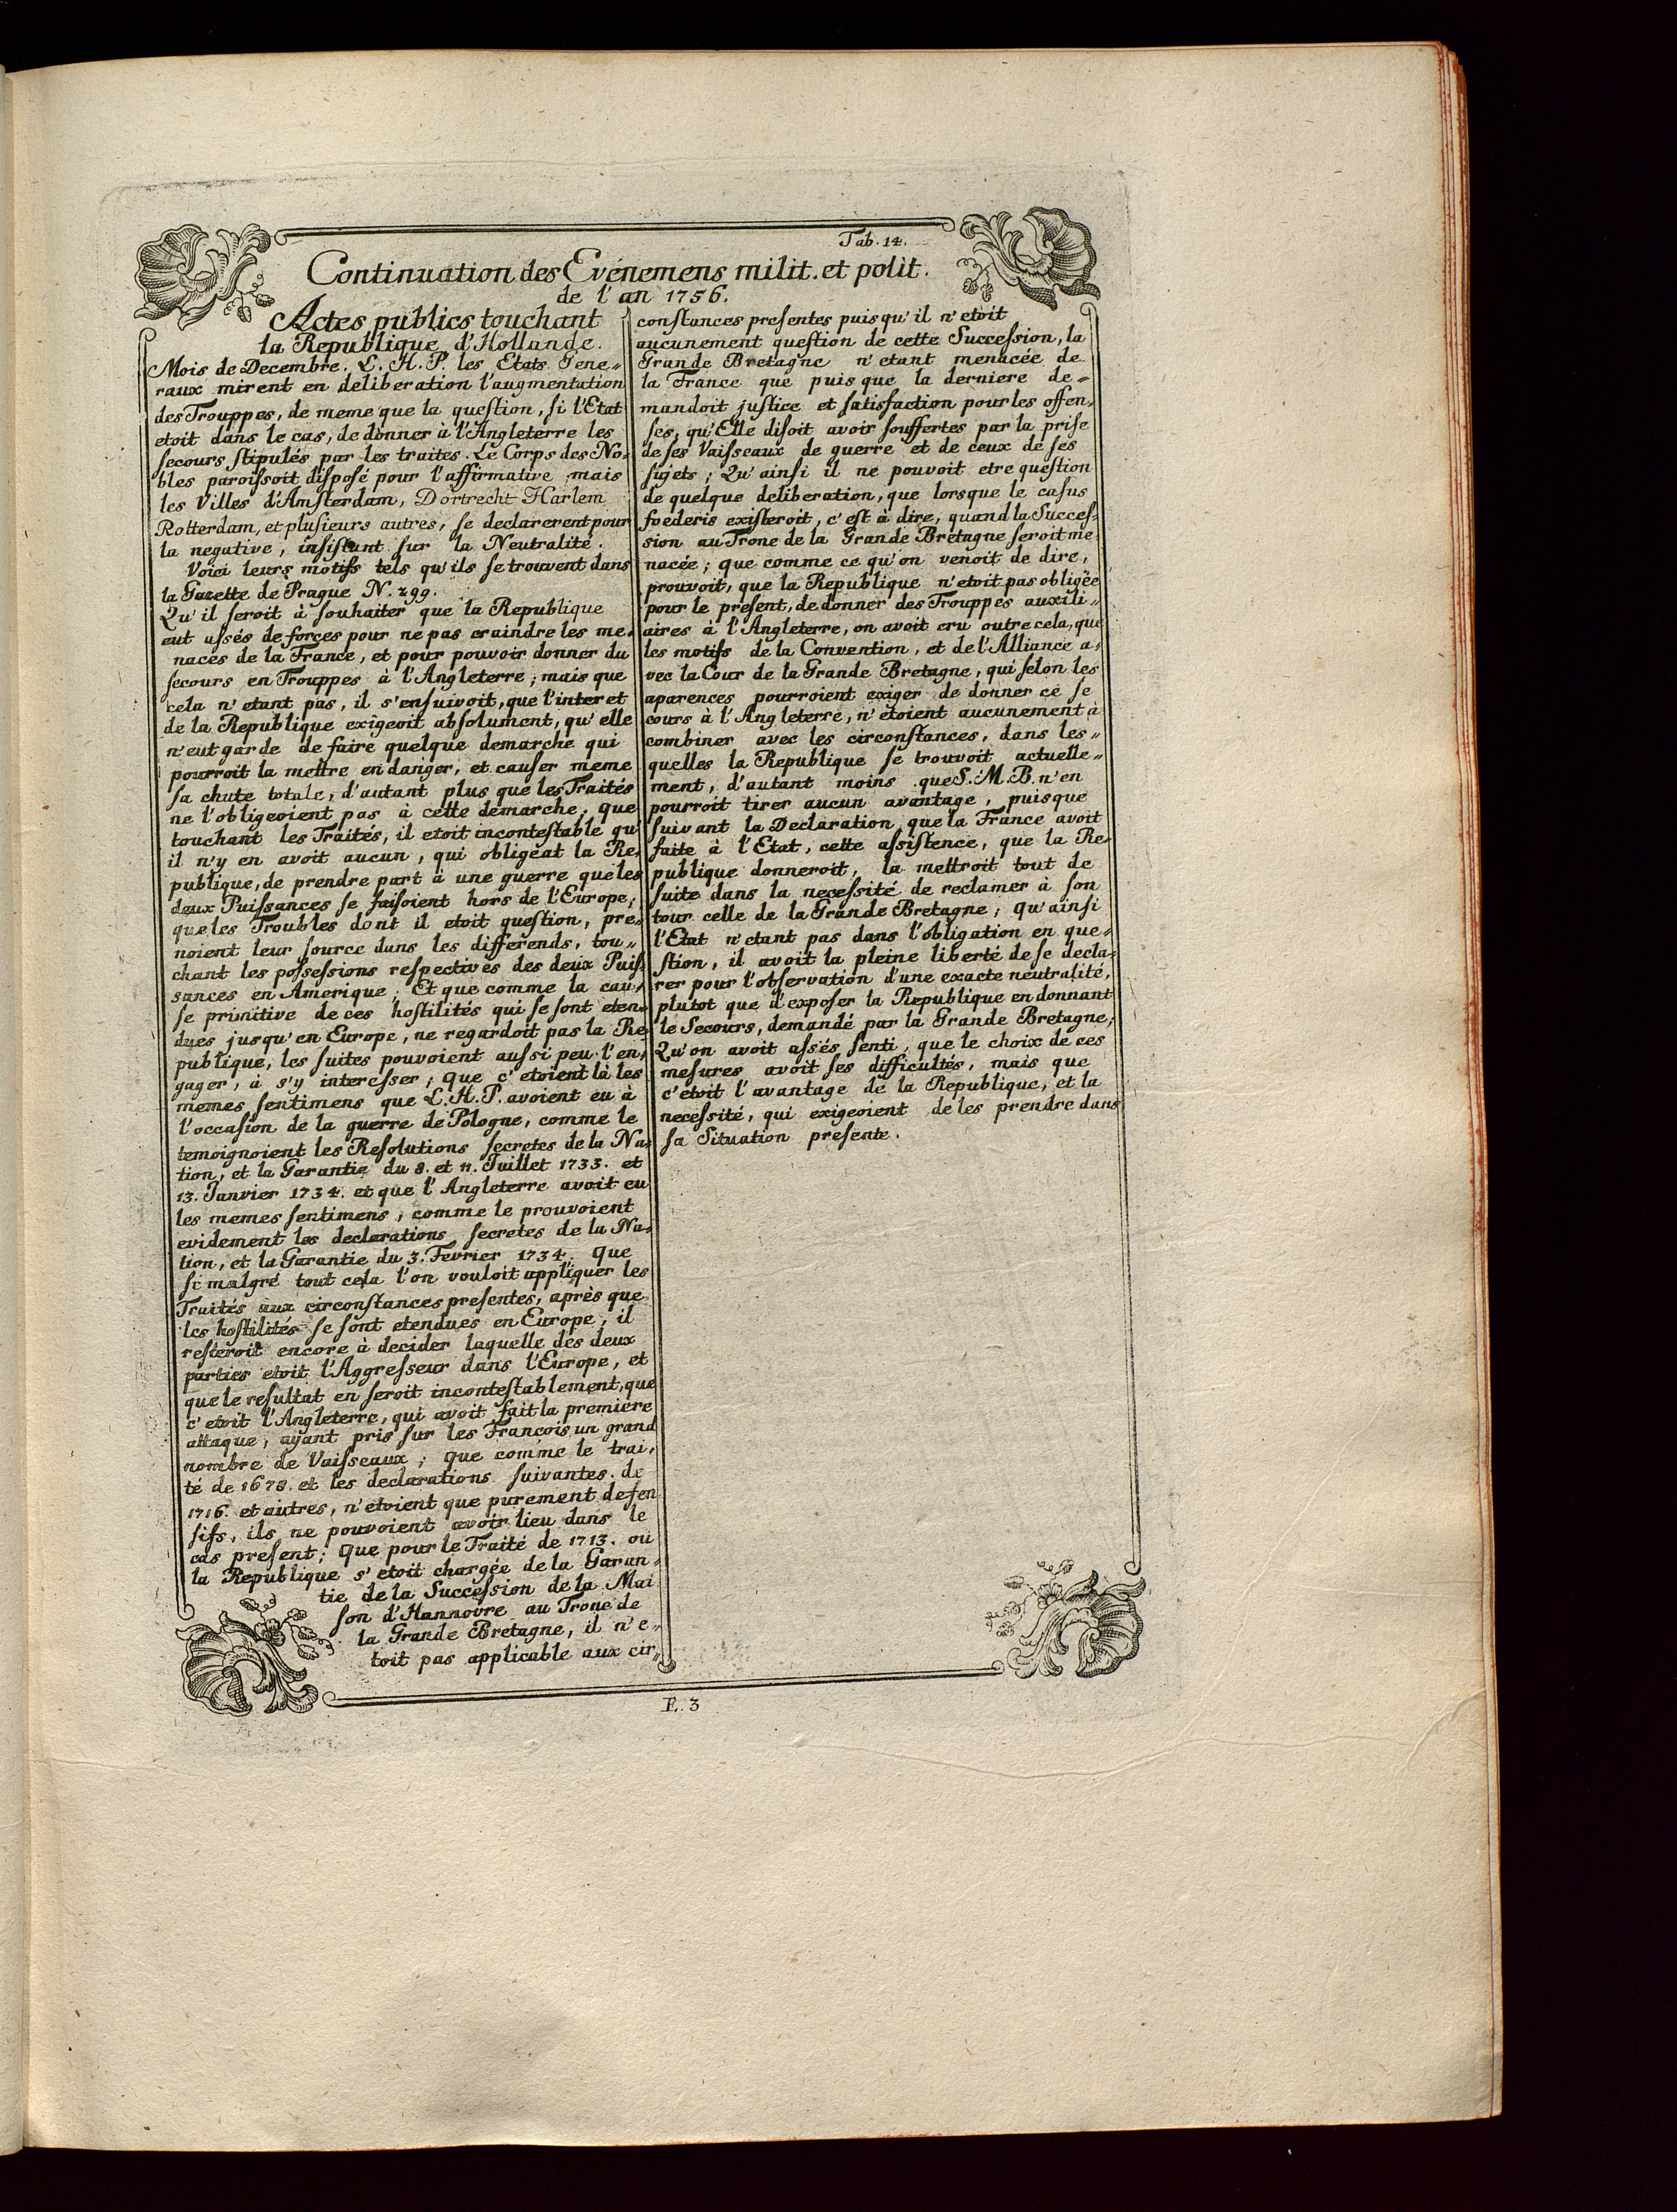 Tab. 14.
Continuation des Evénemens milit. et polit.
de l'an 1756.
Actes publics touchant
la Republique d'Hollande.
Mois de Decembre. L. H. P. les Etats Gene„
raux mirent en deliberation l'augmentation
des Trouppes, de meme que la queſtion, ſi l'Etat
etoit dans le cas, de donner à l'Angleterre les
ſecours ſtipulés par les traites. Le Corps des No„
bles paroiſsoit diſpoſé pour l'affirmative mais
les Villes d'Amſterdam, Dortrecht Harlem
Rotterdam, et pluſieurs autres, ſe declarerent pour
la negative, inſiſtant ſur la Neutralité.
Voici leurs motifs tels qu'ils ſe trouvent dans
la Gazette de Prague N. 299.
Qu'il ſeroit à ſouhaiter que la Republique
eut aſsés de forces pour ne pas craindre les me„
naces de la France, et pour pouvoir donner du
ſecours en Trouppes à l'Angleterre; mais que
cela n'etant pas, il s'enſuivoit, que l'interet
de la Republique exigeoit abſolument, qu'elle
n'eut garde de faire quelque demarche qui
pourroit la mettre en danger, et cauſer meme
ſa chute totale, d'autant plus que les Traités
ne l'obligeoient pas à cette demarche, que
touchant les Traités, il etoit inconteſtable qu'
il n'y en avoit aucun, qui obligeat la Re„
publique, de prendre part à une guerre que les
deux Puiſsances ſe faiſoient hors de l'Europe;
que les Troubles dont il etoit queſtion, pre„
noient leur ſource dans les differends, tou„
chant les poſseſsions reſpectives des deux Puiſ„
sances en Amerique. Et que comme la cau„
ſe primitive de ces hoſtilités qui ſe ſont eten„
dues jusqu'en Europe, ne regardoit pas la Re„
publique, les ſuites pouvoient auſsi peu l'en„
gager, à s'y intereſser; que c'etoient là les
memes ſentimens que L. H. P. avoient eu à
l'occaſion de la guerre de Pologne, comme le
temoignoient les Reſolutions ſecretes de la Na„
tion, et la Garantie du 8. et 11. Juillet 1733. et
13. Janvier 1734. et que l'Angleterre avoit eu
les memes ſentimens, comme le prouvoient
evidement les declarations ſecretes de la Na„
tion, et la Garantie du 3. Fevrier 1734. Que
ſi malgré tout cela l'on vouloit appliquer les
Traités aux circonſtances preſentes, après que
les hoſtilités ſe ſont etendues en Europe, il
reſteroit encore à decider laquelle des deux
parties etoit l'Aggreſseur dans l'Europe, et
que le reſultat en ſeroit inconteſtablement, que
c'etoit l'Angleterre, qui avoit fait la premiere
attaque, ayant pris ſur les Francois un grand
nombre de Vaiſseaux; que comme le trai„
té de 1678. et les declarations ſuivantes de
1716. et autres, n'etoient que purement defen
ſifs, ils ne pouvoient avoir lieu dans le
cas preſent; Que pour le Traité de 1713. ou
la Republique s'etoit chargée de la Garan„
tie de la Succeſsion de la Mai
ſon d'Hannovre au Trone de
la Grande Bretagne, il n'e„
toit pas applicable aux cir„
conſtances preſentes puisqu'il n'etoit
aucunement queſtion de cette Succeſsion, la
Grande Bretagne n'etant menacée de
la France que puis que la derniere de„
mandoit juſtice et ſatisfaction pour les offen„
ſes, qu'Elle diſoit avoir ſouffertes par la priſe
de ſes Vaiſseaux de guerre et de ceux de ſes
ſujets; Qu'ainſi il ne pouvoit etre queſtion
de quelque deliberation, que lorsque le caſus
foederis exiſteroit, c'eſt à dire, quand la Succeſ„
sion au Trone de la Grande Bretagne ſeroit me
nacée; que comme ce qu'on venoit de dire,
prouvoit, que la Republique n'etoit pas obligée
pour le preſent, de donner des Trouppes auxili„
aires à l'Angleterre, on avoit cru outre cela, que
les motifs de la Convention, et de l'Alliance a„
vec la Cour de la Grande Bretagne, qui ſelon les
aparences pourroient exiger de donner ce ſe
cours à l'Angleterre, n'etoient aucunement à
combiner avec les circonſtances, dans les„
quelles la Republique ſe trouvoit actuelle„
ment, d'autant moins que S. M. B. n'en
pourroit tirer aucun avantage, puisque
ſuivant la Declaration que la France avoit
faite à l'Etat, cette aſsiſtence, que la Re„
publique donneroit, la mettroit tout de
ſuite dans la neceſsité de reclamer à ſon
tour celle de la Grande Bretagne; qu'ainſi
l'Etat n'etant pas dans l'obligation en que„
ſtion, il avoit la pleine liberté de ſe decla„
rer pour l'obſervation d'une exacte neutralité,
plutot que d'expoſer la Republique en donnant
le Secours, demandé par la Grande Bretagne;
Qu'on avoit aſsés ſenti, que le choix de ces
meſures avoit ſes difficultés, mais que
c'etoit l'avantage de la Republique, et la
neceſsité, qui exigeoient de les prendre dans
ſa Situation preſente.
E. 3